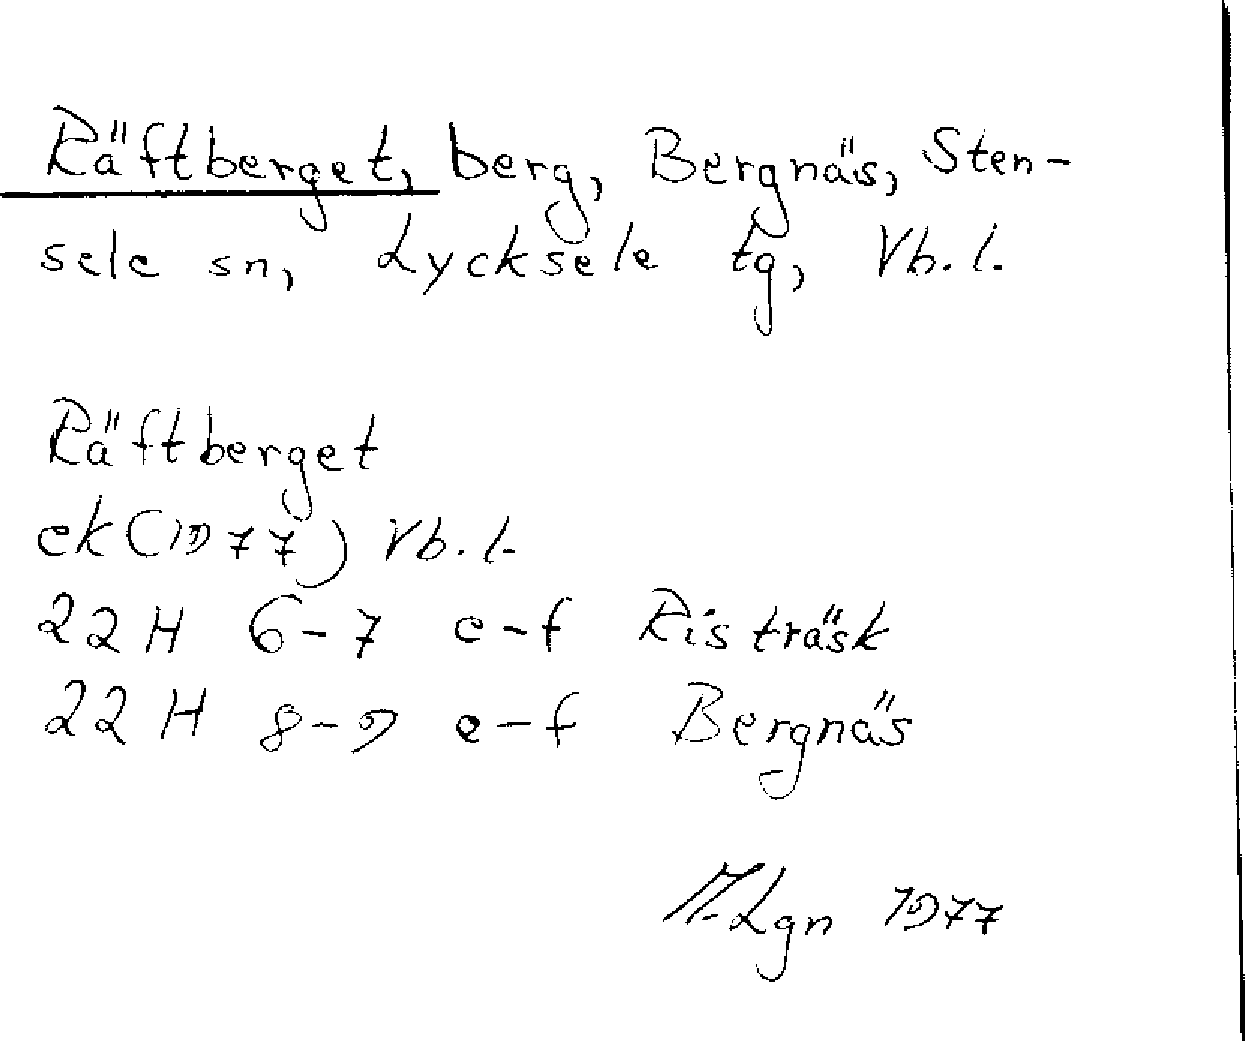 Räftberget, berg, Bergnäs, Sten-
sele sn, Lycksele tg, Vb. l.
Räftberget
ek (1977) Vb. l.
22 H 6-7 e-f Risträsk
22 H 8-9 e-f Bergnäs
Lgn 1977